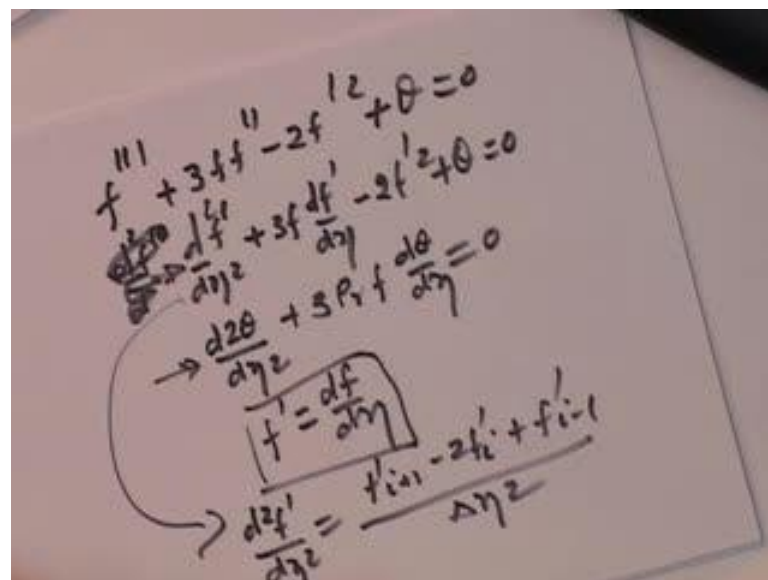 f''' + 3ff'' - 2f'² + θ = 0
d²f'/dη² + 3f df'/dη - 2f'² + θ = 0
→ d2θ/dη² + 3Prf dθ/dη = 0
f' = df/dη
d²f'/dη² = (f'i+1 - 2f'i + f'i-1)/Δη²